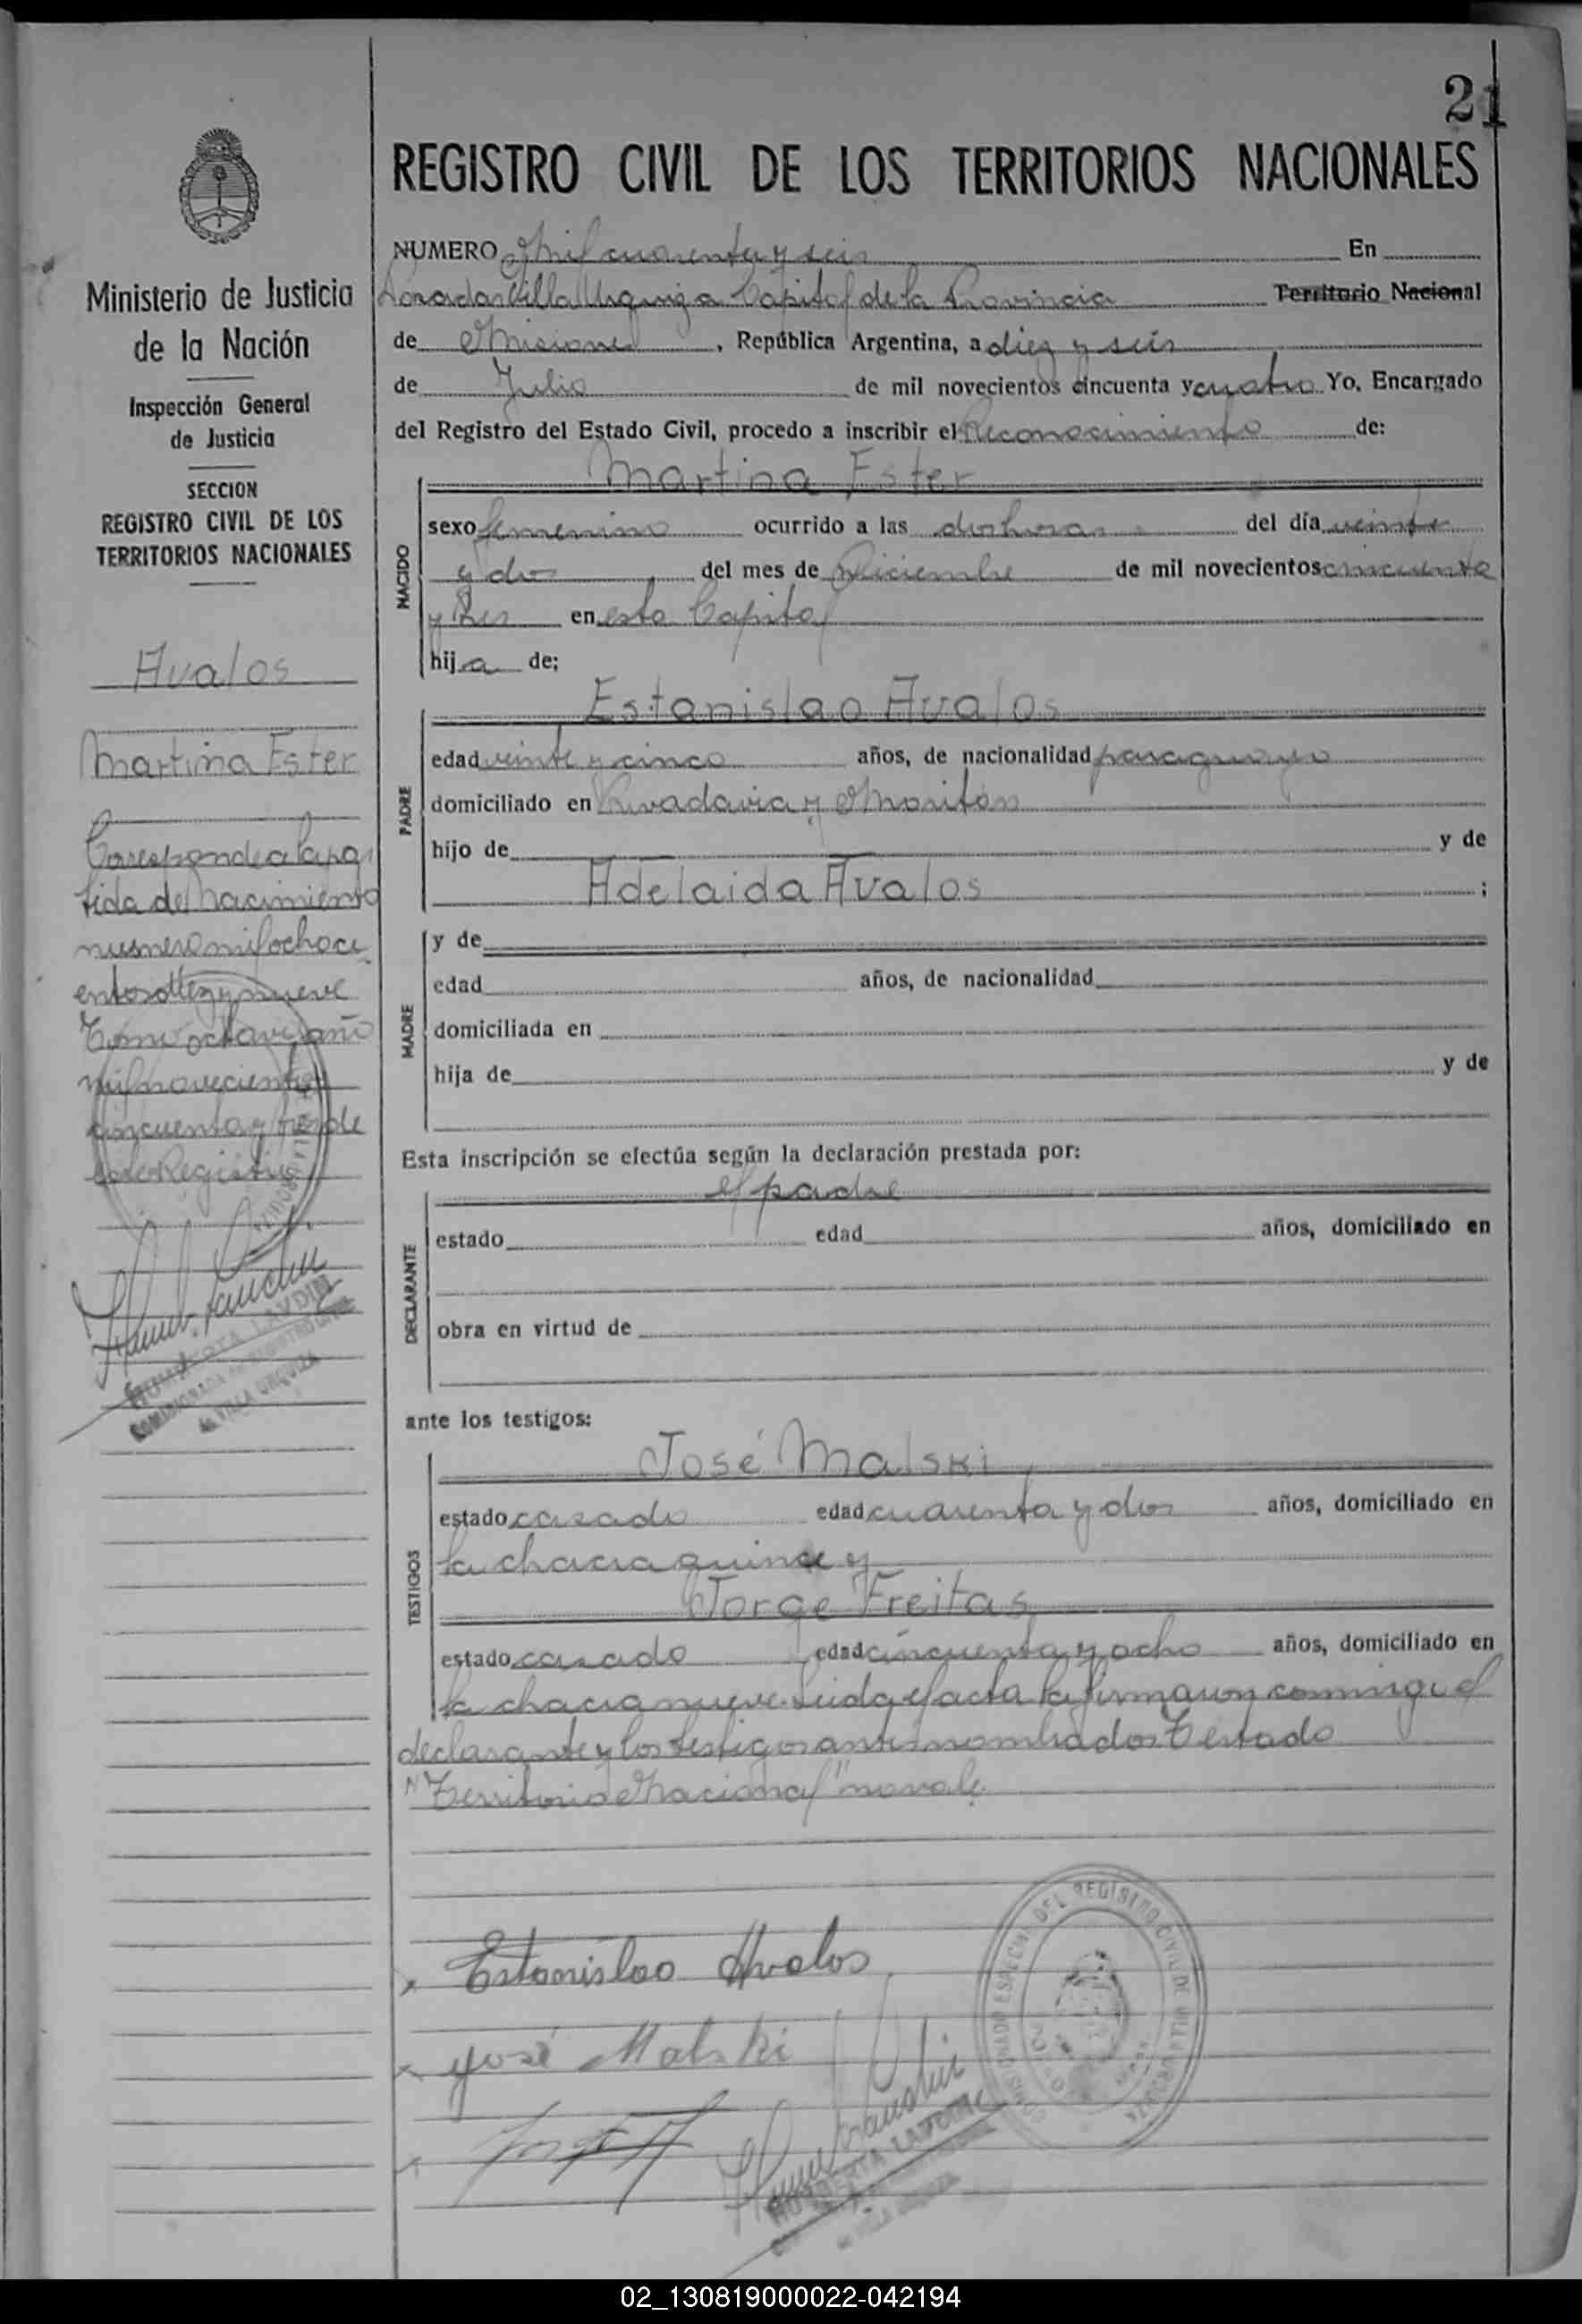 21
REGISTRO CIVIL DE LOS TERRITORIOS NACIONALES
Ministerio de Justicia
de la Nación
Inspección General
de Justicia
SECCION
REGISTRO CIVIL DE LOS
TERRITORIOS NACIONALES
Avalos
Martina Ester
Corresponde a la par
tida de nacimiento
numero mil ochoci
entos diez y nueve
Tomo octavo, año
mil novecientos
cincuenta y tres de
este Registro
HUMBERTA LAUDIN
COMISIONADA REGISTRO CIVIL
de VILLA URQUIZA
NUMERO Mil cuarenta y seis En
Posadas Villa Urquiza Capital de la Provincia Territorio Nacional
de Misiones, República Argentina, a diez y seis
de Julio de mil novecientos cincuenta y cuatro Yo, Encargado
del Registro del Estado Civil, procedo a inscribir el Reconocimiento de:
NACIDO
Martina Ester
sexo femenino ocurrido a las dos horas del día veinte
y dos del mes de Diciembre de mil novecientos cincuenta
y tres en esta Capital
hija de;
PADRE
Estanislao Avalos
edad veinte y cinco años, de nacionalidad paraguayo
domiciliado en Rivadavia y
hijo de y de
Adelaida Avalos ;
MADRE
y de
edad años, de nacionalidad
domiciliada en
hija de y de
Esta inscripción se efectúa según la declaración prestada por:
DECLARANTE
el padre
estado edad años, domiciliado en
obra en virtud de
ante los testigos:
TESTIGOS
José Malski
estado casado edad cuarenta y dos años, domiciliado en
la chacra quince y
Jorge Freitas
estado casado edad cincuenta y ocho años, domiciliado en
la chacra nueve. Leida el acta la firmaron conmigo el
declarante y los testigos antes nombrados Testado
"Territorio Nacional" no vale.
Estanislao Avalos
José Malski
HUMBERTA LAUDIN
DEL REGISTRO CIVIL DE VILLA URQUIZA
02_130819000022-042194